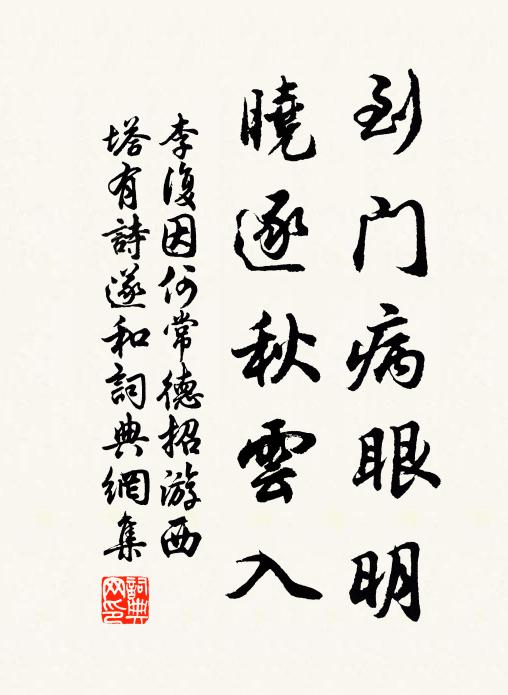 到门病眼明
曉逐秋雲入
李復因何常德招游西
塔有詩遂和詞典網集
詞典網印